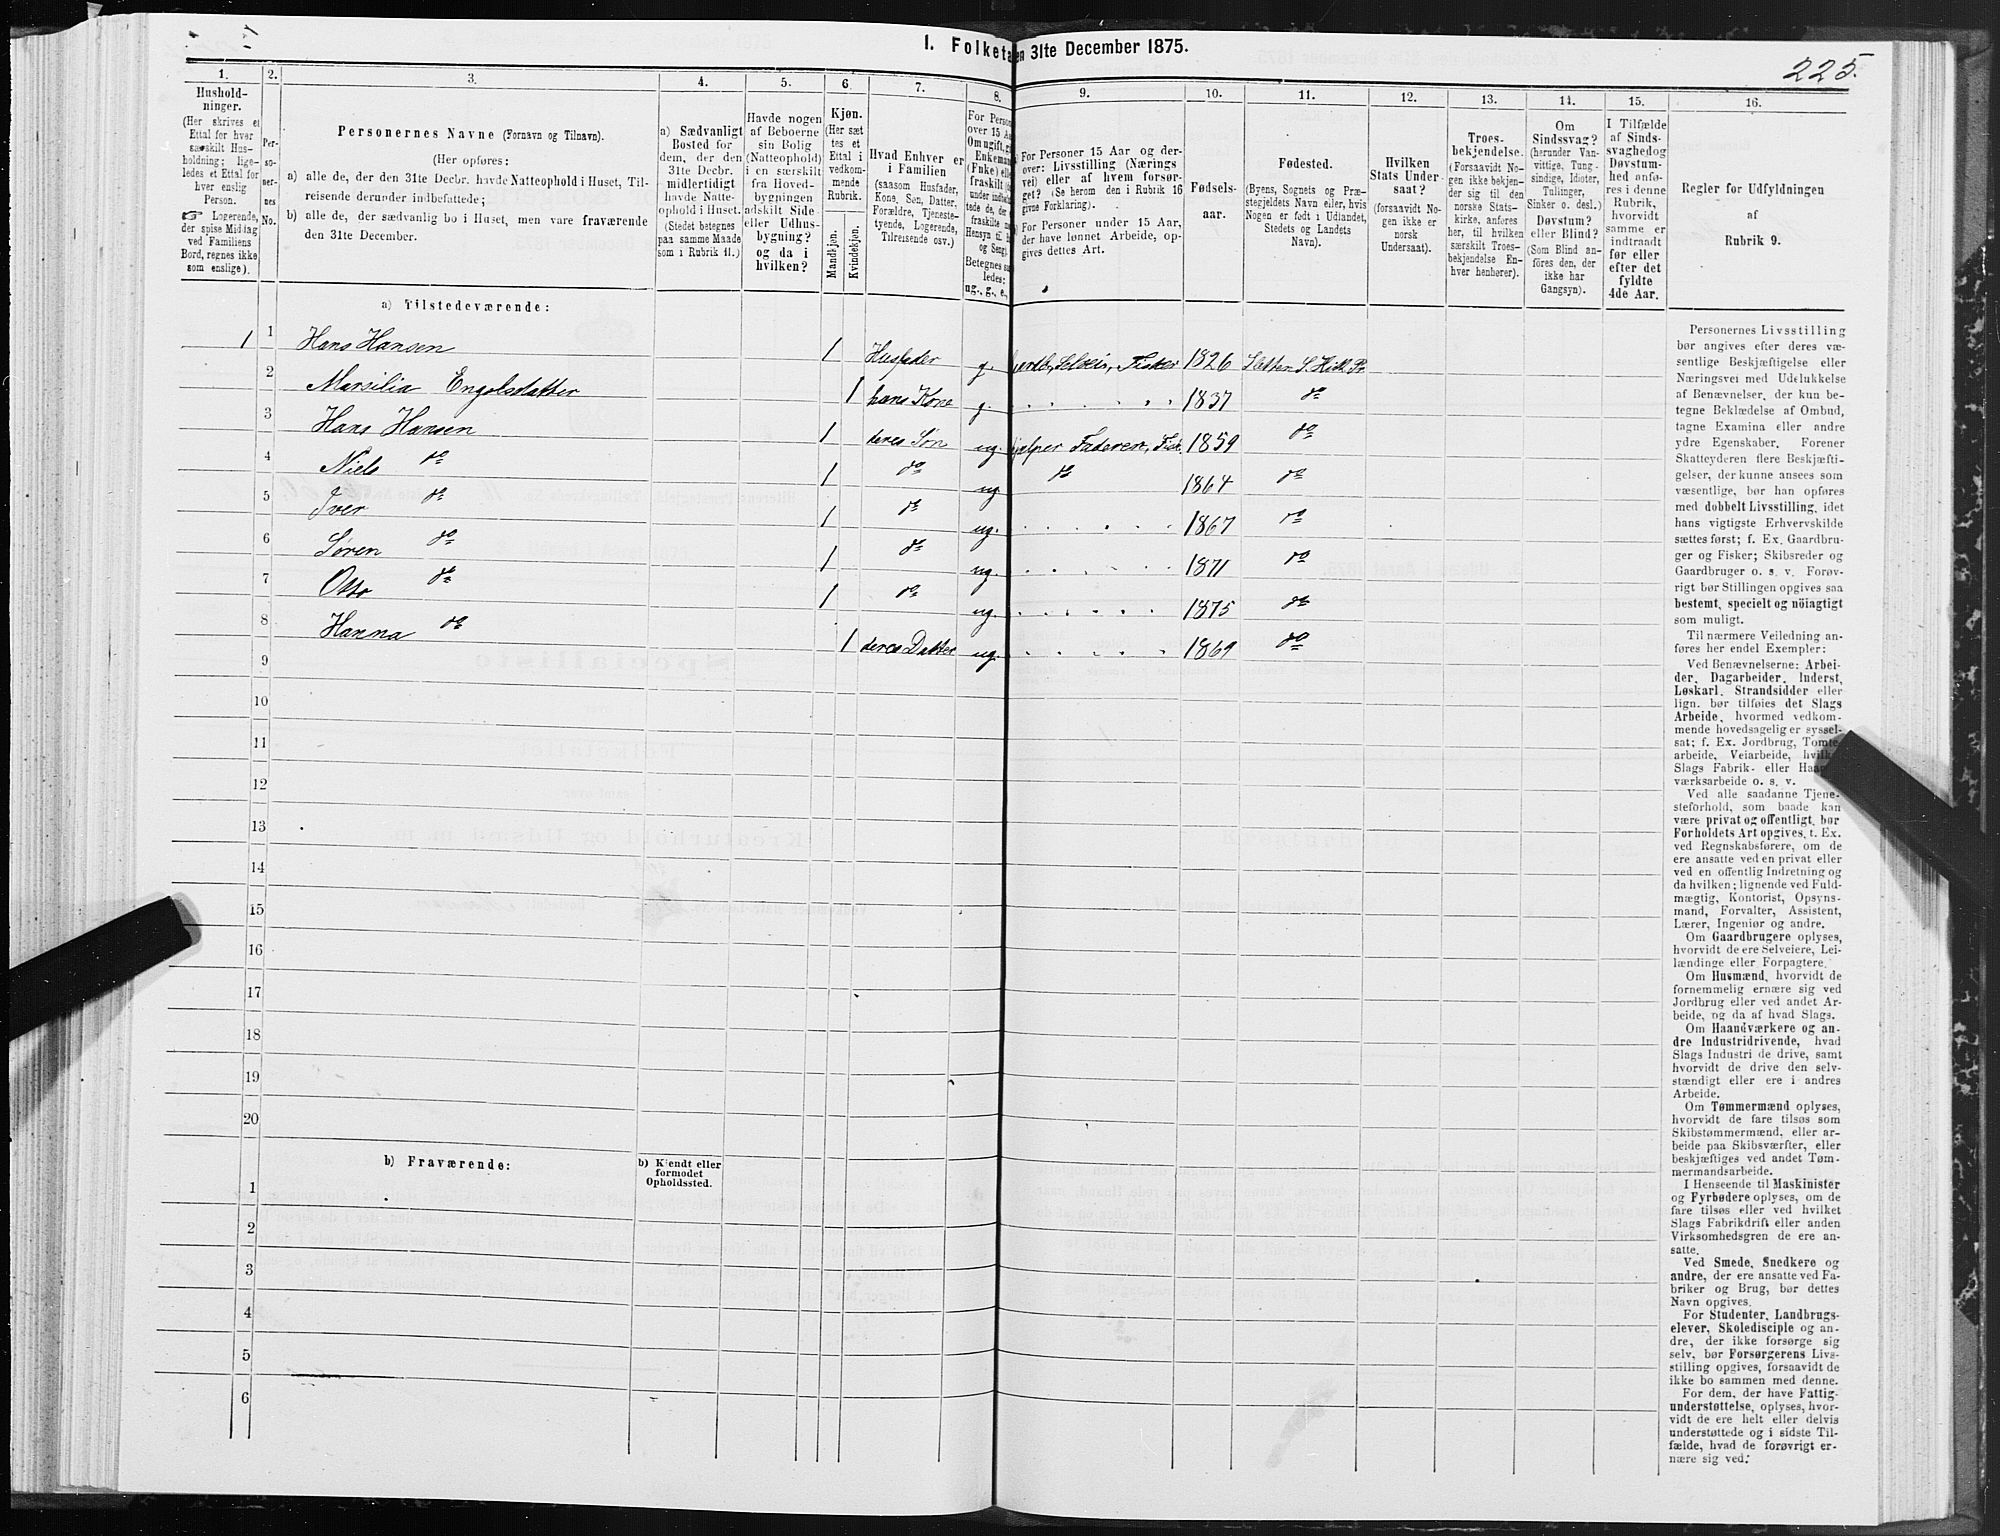 I. Folketa en 31te December 1875.
225.
1.
Hushold-
ninger.
(Her skrives et
Ettal for hver
særskilt Hus-
holdning; lige-
ledes et Ettal for
hver enslig
Person.
☞ Logerende,
der spise Middag
ved Familiens
Bord, regnes ikke
som enslige).
2.
Per-
so-
ner-
nes
No.
3.
Personernes Navne (Fornavn og Tilnavn).
(Her opføres:
a) alle de, der den 31te Decbr. havde Natteophold i Huset, Til-
reisende derunder indbefattede;
b) alle de, der sædvanlig bo i Huset, men vare fraværende
den 31te December.
4.
a) Sædvanligt
Bosted for
dem, der den
31te Decbr.
midlertidigt
havde Natte-
ophold i Huset.
(Stedet betegnes
paa samme Maade
som i Rubrik 11.)
5.
Havde nogen
af Beboerne
sin Bolig
(Natteophold)
i en særskilt
fra Hoved-
bygningen
adskilt Side-
eller Udhus-
bygning?
og da i
hvilken?
6.
Kjøn.
(Her sæt-
tes et
Ettal i
vedkom-
mende
Rubrik.
Mandkjøn.
Kvindekjøn.
7.
Hvad Enhver er
i Familien
(saasom Husfader,
Kone, Søn, Datter,
Forældre, Tjeneste-
tyende, Logerende,
Tilreisende osv.)
8.
For Person
over 15 Aa
Om ugift, gi
Enkeman
(Enke) elle
fraskilt
under indbefat
tede de, der e
fraskilte m
Hensyn til B
og Seng).
Betegnes saa
ledes:
ug., g., e.,
9.
For Personer 15 Aar og der-
over: Livsstilling (Nærings
vei) eller af hvem forsør-
get? (Se herom den i Rubrik 16
givne Forklaring).
For Personer under 15 Aar,
der have lønnet Arbeide, op-
gives dettes Art.
10.
Fødsels-
aar.
11.
Fødested.
(Byens, Sognets og Præ-
stegjeldets Navn eller, hvis
Nogen er født i Udlandet,
Stedets og Landets
Navn).
12.
Hvilken
Stats Under-
saat?
(forsaavidt No-
gen ikke er
norsk
Undersaat).
13.
Troes-
bekjendelse.
(Forsaavidt No-
gen ikke bekjen-
der sig til den
norske Stats-
kirke, anføres
her, til hvilken
særskilt Troes-
bekjendelse En-
hver henhører).
14.
Om
Sindssvag?
(herunder Van-
vittige, Tung-
sindige, Idioter,
Tullinger,
Sinker o. desl.)
Døvstum?
eller Blind?
(Som Blind an-
føres den, der
ikke har
Gangsyn).
15.
I Tilfælde
af Sinds-
svaghedog
Døvstum-
hed anfø-
res i denne
Rubrik,
hvorvidt
samme er
indtraadt
før eller
efter det
fyldte
4de Aar.
16.
Regler for Udfyldningen
af
Rubrik 9.
a) Tilstedeværende:
1 1 Hans Hansen 1 Husfader g. Selveier, Fisker 1826
2 Marsilia Engelsdatter 1 hans Kone g. 1837 do
3 Hans Hansen 1 deres Søn ug. jelper Faderen, Fisk. 1859 do
4 Niels do 1 do ug do 1864 do
5 Iver do 1 do ug. 1867 do
6 Søren do 1 do ug. 1871 do
7 Otto do 1 do ug. 1875 do
8 Hanna do 1 deres Datter ug. 1869 do
9
10
11
12
13
14
15
16
17
18
19
20
b) Fraværende:
b) Kjendt eller
formodet
Opholdssted.
1
2
3
4
5
6
Personernes Livsstilling
bør angives efter deres væ-
sentlige Beskjæftigelse eller
Næringsvei med Udelukkelse
af Benævnelser, der kun be-
tegne Beklædelse af Ombud,
tagne Examina eller andre
ydre Egenskaber. Forener
Skatteyderen flere Beskjæfti-
gelser, der kunne ansees som
væsentlige, bør han opføres
med dobbelt Livsstilling, idet
hans vigtigste Erhvervskilde
sættes først; f. Ex. Gaardbru-
ger og Fisker; Skibsreder og
Gaardbruger o. s. v. Forøv-
rigt bør Stillingen opgives saa
bestemt, specielt og nöiagtigt
som muligt.
Til nærmere Veiledning an-
føres her endel Exempler:
Ved Benævnelserne: Arbei-
der, Dagarbeider, Inderst,
Løskarl, Strandsidder eller
lign. bør tilføies det Slags
Arbeide, hvormed vedkom-
mende hovedsagelig er syssel-
sat; f. Ex. Jordbrug, Tomte-
arbeide, Veiarbeide, hvilke
Slags Fabrik- eller Haand-
værksarbeide o. s. v.
Ved alle saadanne Tjene-
steforhold, som baade kan
være privat og offentligt, bør
Forholdets Art opgives, t. Ex.
ved Regnskabsførere, om de
ere ansatte ved en privat eller
ved en offentlig Indretning og
da hvilken; lignende ved Fuld-
mægtig, Kontorist, Opsyns-
mand, Forvalter, Assistent,
Lærer, Ingeniør og andre.
Om Gaardbrugere oplyses,
hvorvidt de ere Selveiere, Lei-
lændinge eller Forpagtere.
Om Husmænd, hvorvidt de
fornemmelig ernære sig ved
Jordbrug eller ved andet Ar-
beide, og da af hvad Slags.
Om Haandværkere og an-
dre Industridrivende, hvad
Slags Industri de drive, samt
hvorvidt de drive den selv-
stændigt eller ere i andres
Arbeide.
Om Tømmermænd oplyses,
hvorvidt de fare tilsøs som
Skibstømmermænd, eller ar-
beide paa Skibsværfter, eller
beskjæftiges ved andet Tøm-
mermandsarbeide.
I Henseende til Maskinister
og Fyrbødere oplyses, om de
fare tilsøs eller ved hvilket
Slags Fabrikdrift eller anden
Virksomhedsgren de ere an-
satte.
Ved Smede, Snedkere og
andre, der ere ansatte ved Fa-
briker og Brug, bør dettes
Navn opgives.
For Studenter, Landbrugs-
elever, Skoledisciple og an-
dre, der ikke forsørge sig
selv, bør Forsørgerens Livs-
stilling opgives, forsaavidt de
ikke bo sammen med denne.
For dem, der have Fattig-
understøttelse, oplyses, hvor-
vidt de ere helt eller delvis
understøttede og i sidste Til-
fælde, hvad de forøvrigt er-
nære sig ved.